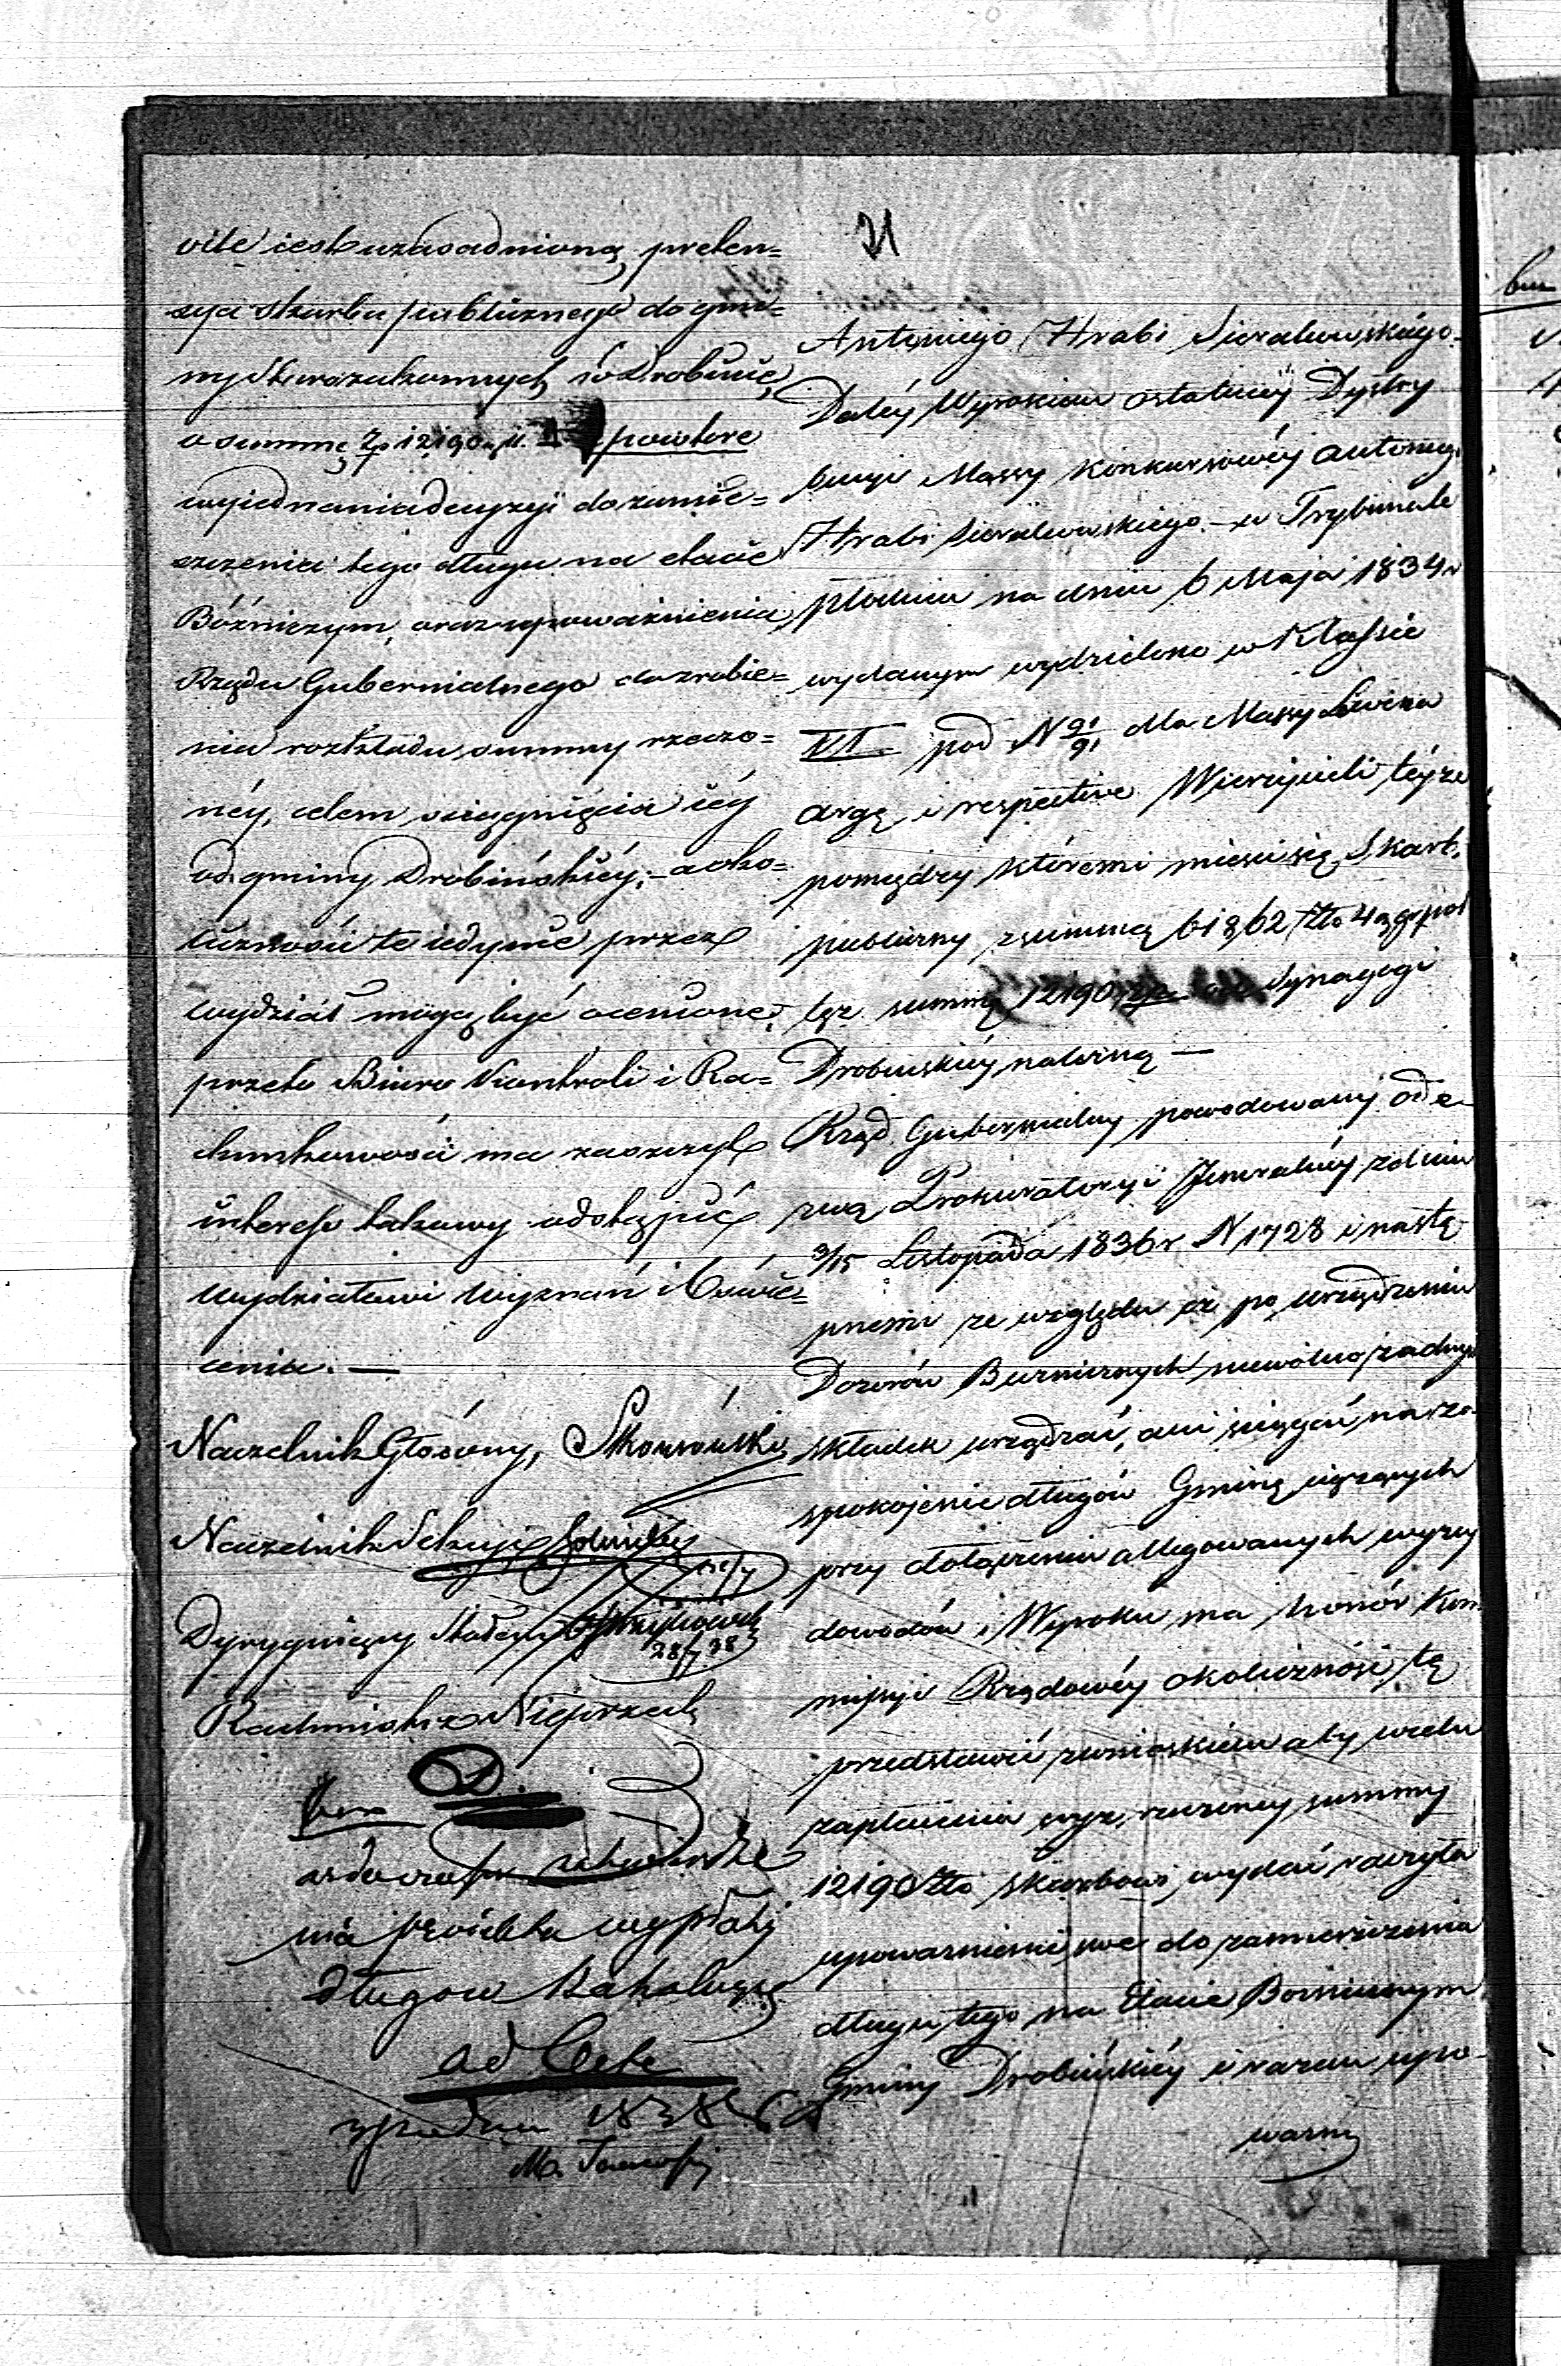 vile iest uzasadnioną preten=
sya skarbu publicznego do gmi=
ny Starozakonnych w Drobinie,
o summę Zp 12,190 powtóre
wyiednania decyzyi do zamie=
szczenia tego długu na etacie
Bóźniczym, oraz upoważnienia
Rządu Gubernialnego do zrobie=
nia rozkładu summy rzeczo=
néy, celem sciągnięcia iéy
od gminy Drobińskiéy, – a oko=
liczności te iedynie przez
wydział mogą być ocenione,
przeto Biuro Kontroli i Ra=
chunkowości ma zaszczyt
interess takowy odstąpić
wydziałowi Wyznań i Oświe=
cenia. —
Naczelnik Główny,
Naczelnik Sekcyi
Dyrygujący
28/7 38
Rachmistrz
długów Kahalnych
ad acta
1838
21
Antoniego Hrabi Sieralewskiego.
Daléy Wyrokiem ostatecznéy Dystry
bucyi Massy konkursowéy Antoniego
Hrabi Sieralewskiego – w Trybunale
Płockim na dniu 6 Maja 1834 r
wydanym wydzielono w Klassie
VII pod N 91 dla Massy Lewina
arge i respective Wierzycieli téyże
pomiędzy któremi mieści się Skarb
publiczny z summą 61862 Złp 4 gr pol
też summę 12190 Synagogi
Drobińskiéy należną —
Rząd Gubernialny powodowany ode
zwą Prokuratoryi Jeneralnéy z dnia
3/15 Listopada 1836 r N 1728 i nastę
pnemi ze względu że po urządzeniu
Dozorów Bużniczych niewolno żadnych
składek urządzać, ani ściągać na zas
spokojenie długów Gminę ciążących
przy dołączeniu allegowanych wyżey
dowodów i Wyroku ma honór Kom
missyi Rządowéy okoliczność tę
przedstawić z wnioskiem aby w celu
zapłacenia wyż. rzeczoney summy
12190 Złp skarbowi, wydać raczyła
upoważnienie swe do zamieszczenia
długu tego na Etacie Bożniczym
Gminy Drobińskiéy i razem upo
ważni